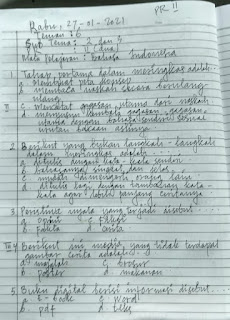 PR II
Rabu, 27-01-2021
Tema : 6
Sub Tema : 2 dan 3
Mata Pelajaran : Bahasa Indonesia
1. Tahap pertama dalam meringkas adalah..
a. Membuat peta konsep
b. membaca naskah secara berulang-
ulang
c. Mencatat gagasan utama dari naskah
d. menyusun kembali gagasan-gagasan
utama dengan bahasa sendiri sesuai
urutan bacaan aslinya.
2. Berikut yang bukan langkah-langkah
dalam meringkas adalah ....
a. ditulis dengan kata-kata sendiri
b. bahasanya singkat dan jelas
c. mudah dimengerti orang lain
d. ditulis lagi dengan tambahan kata-
kata agar lebih panjang ceritanya
3. Peristiwa nyata yang terjadi disebut ..
a. opini c. fiksi
b. fakta d. cerita
4. Berikut ini media yang tidak terdapat
gambar cerita adalah ...
a. majalah c. brosur
b. poster d. makanan
5. Buku digital berisi informasi disebut ...
a. e-book c. word
b. pdf d. teks